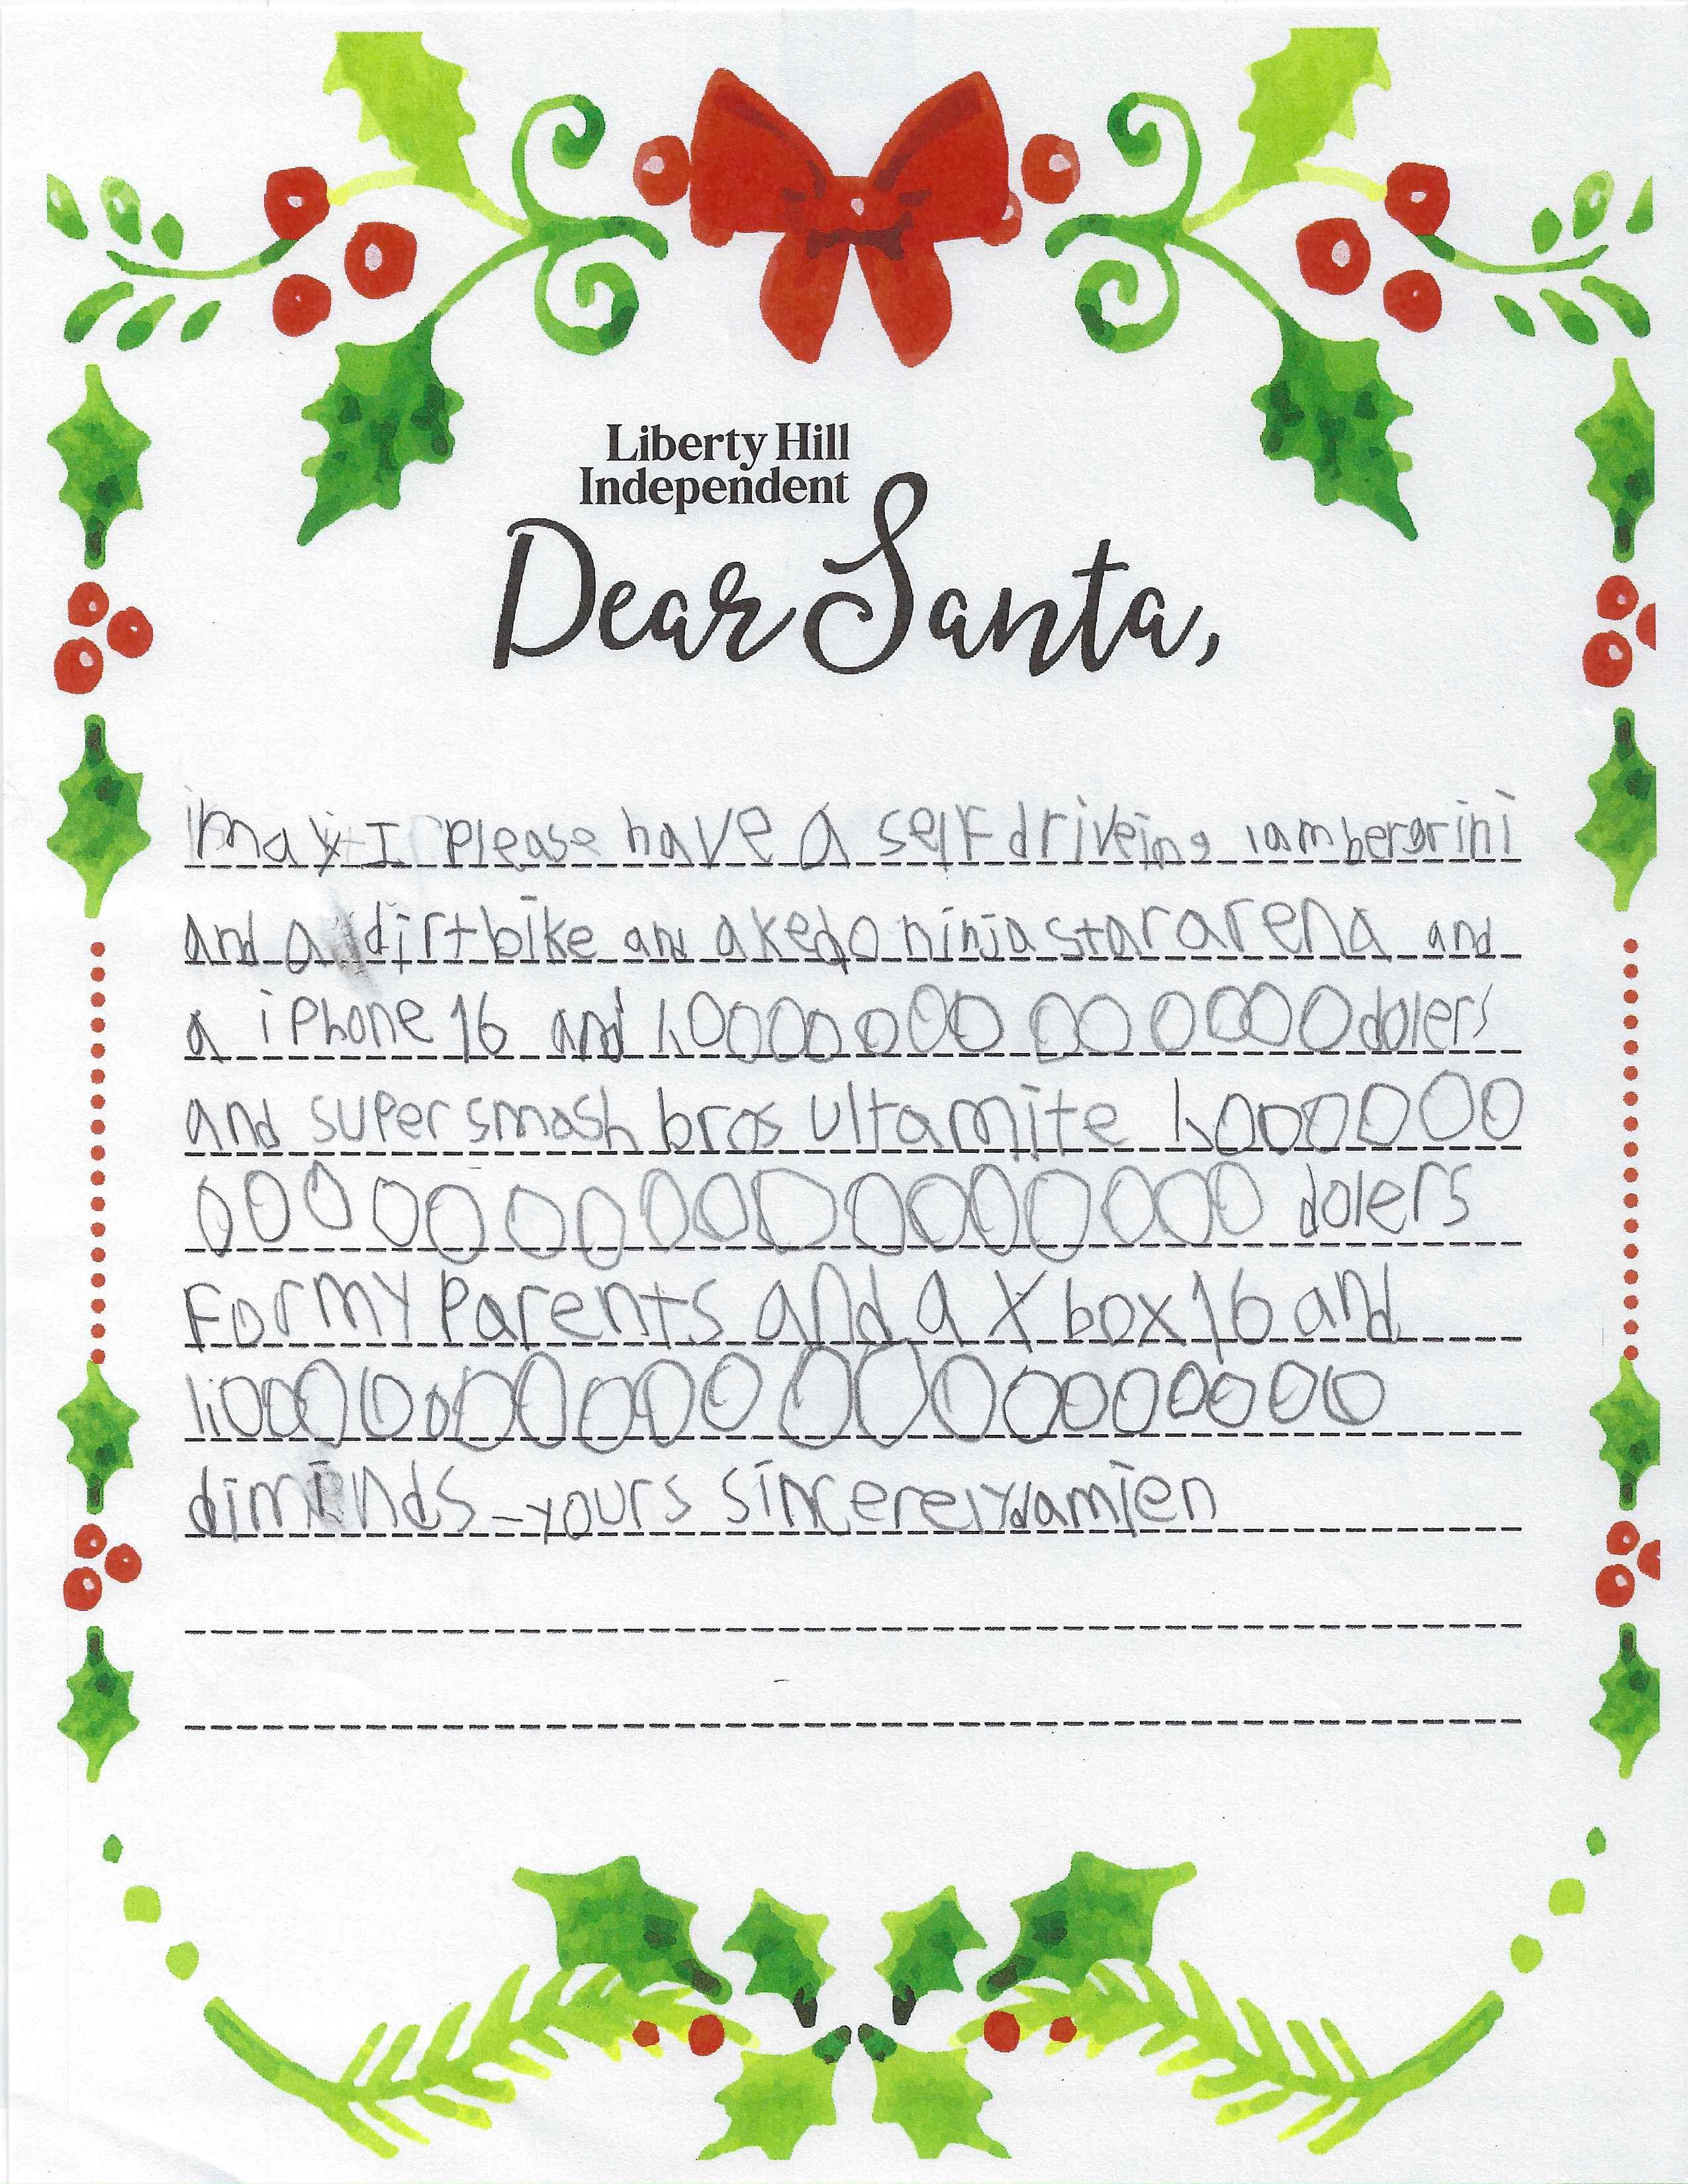 Liberty Hill
Independent
Dear Santa,
may I please have a self driveing lambergrini
and a dirtbike and akedo ninja star arena and
a iPhone 16 and 1,00000000000000 dolers
and super smash bros ultamite 1,0000000
00000000000000000 dolers
For my Parents and a X box 16 and
1,0000000000000000000000
diminds - yours sincerely damien